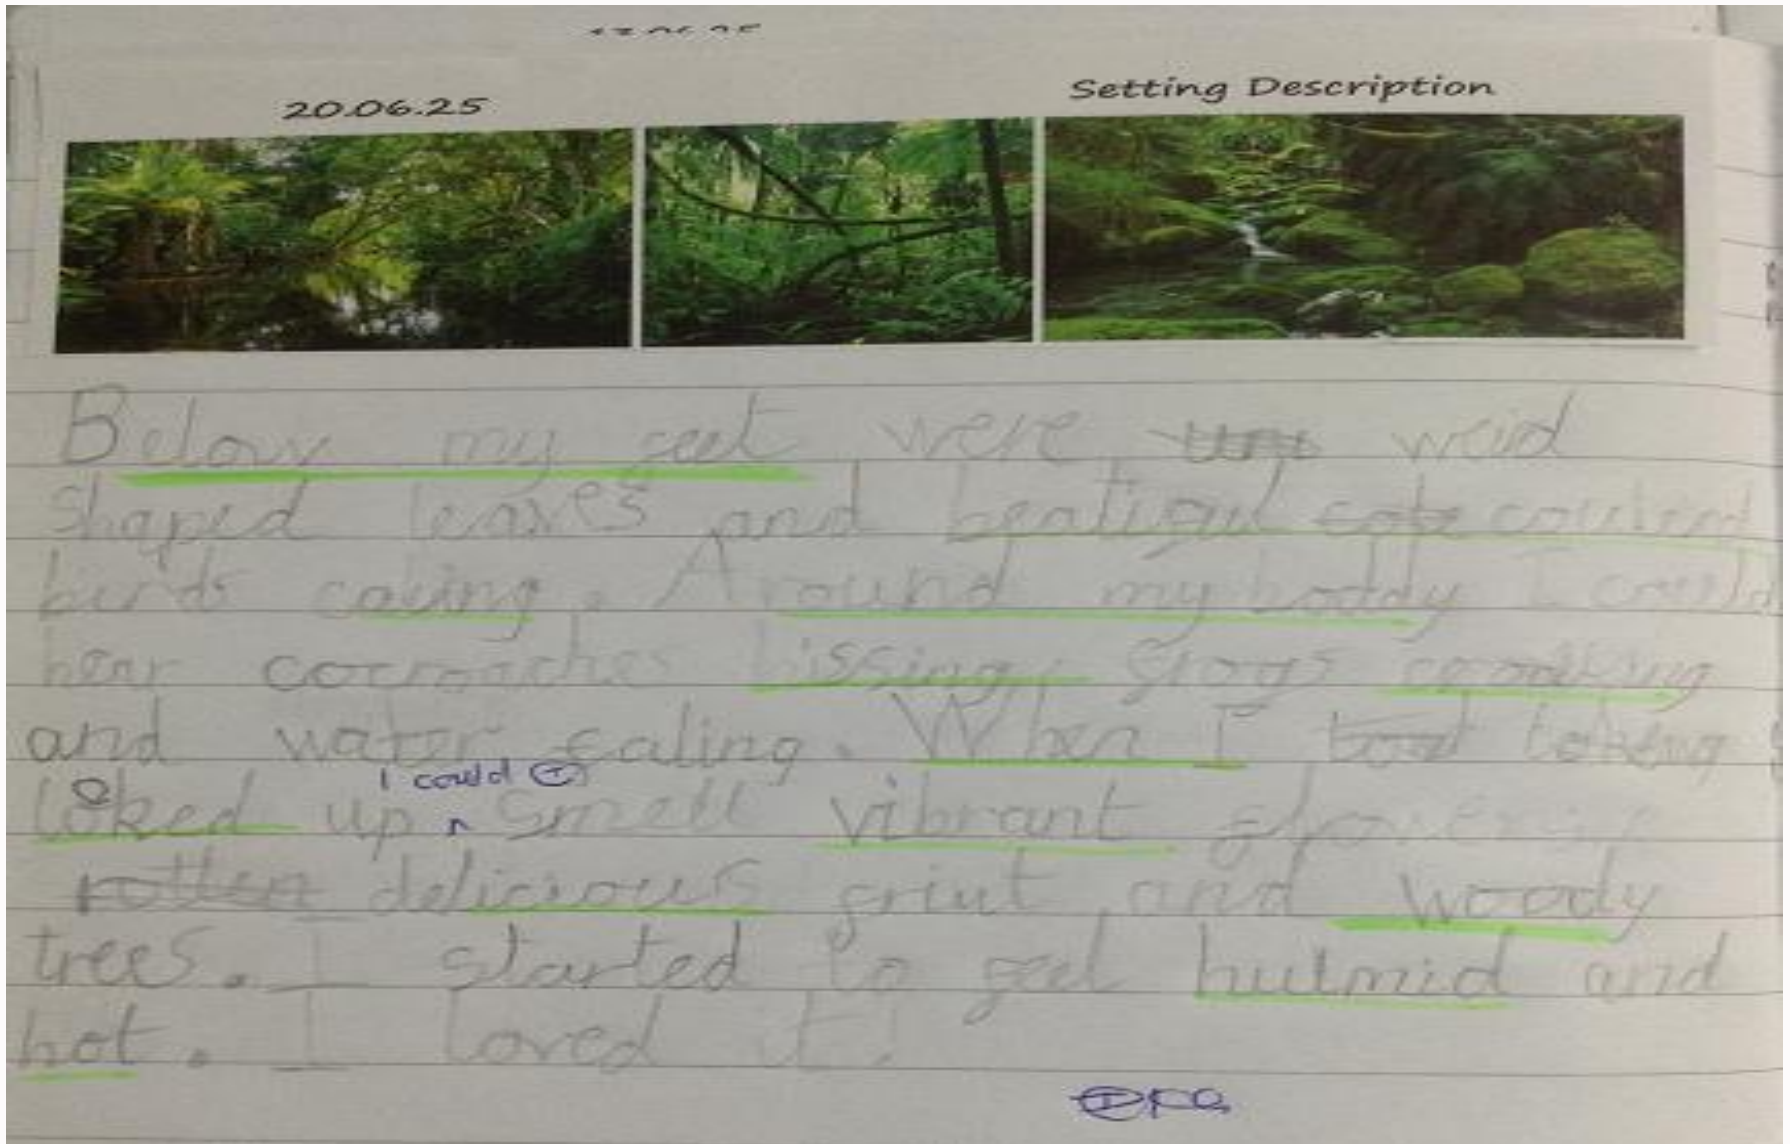 20.06.25
Setting Description
Below my feet were weid
shaped leaves and beatiful coulerd
birds caling. Around my boddy I could
hear cocroaches hissing, frogs croaking
and water faling. When I
I could
loked up smell vibrant
rotten delicious friut and woody
trees. I started to feel hulmid and
hot. I loved it!